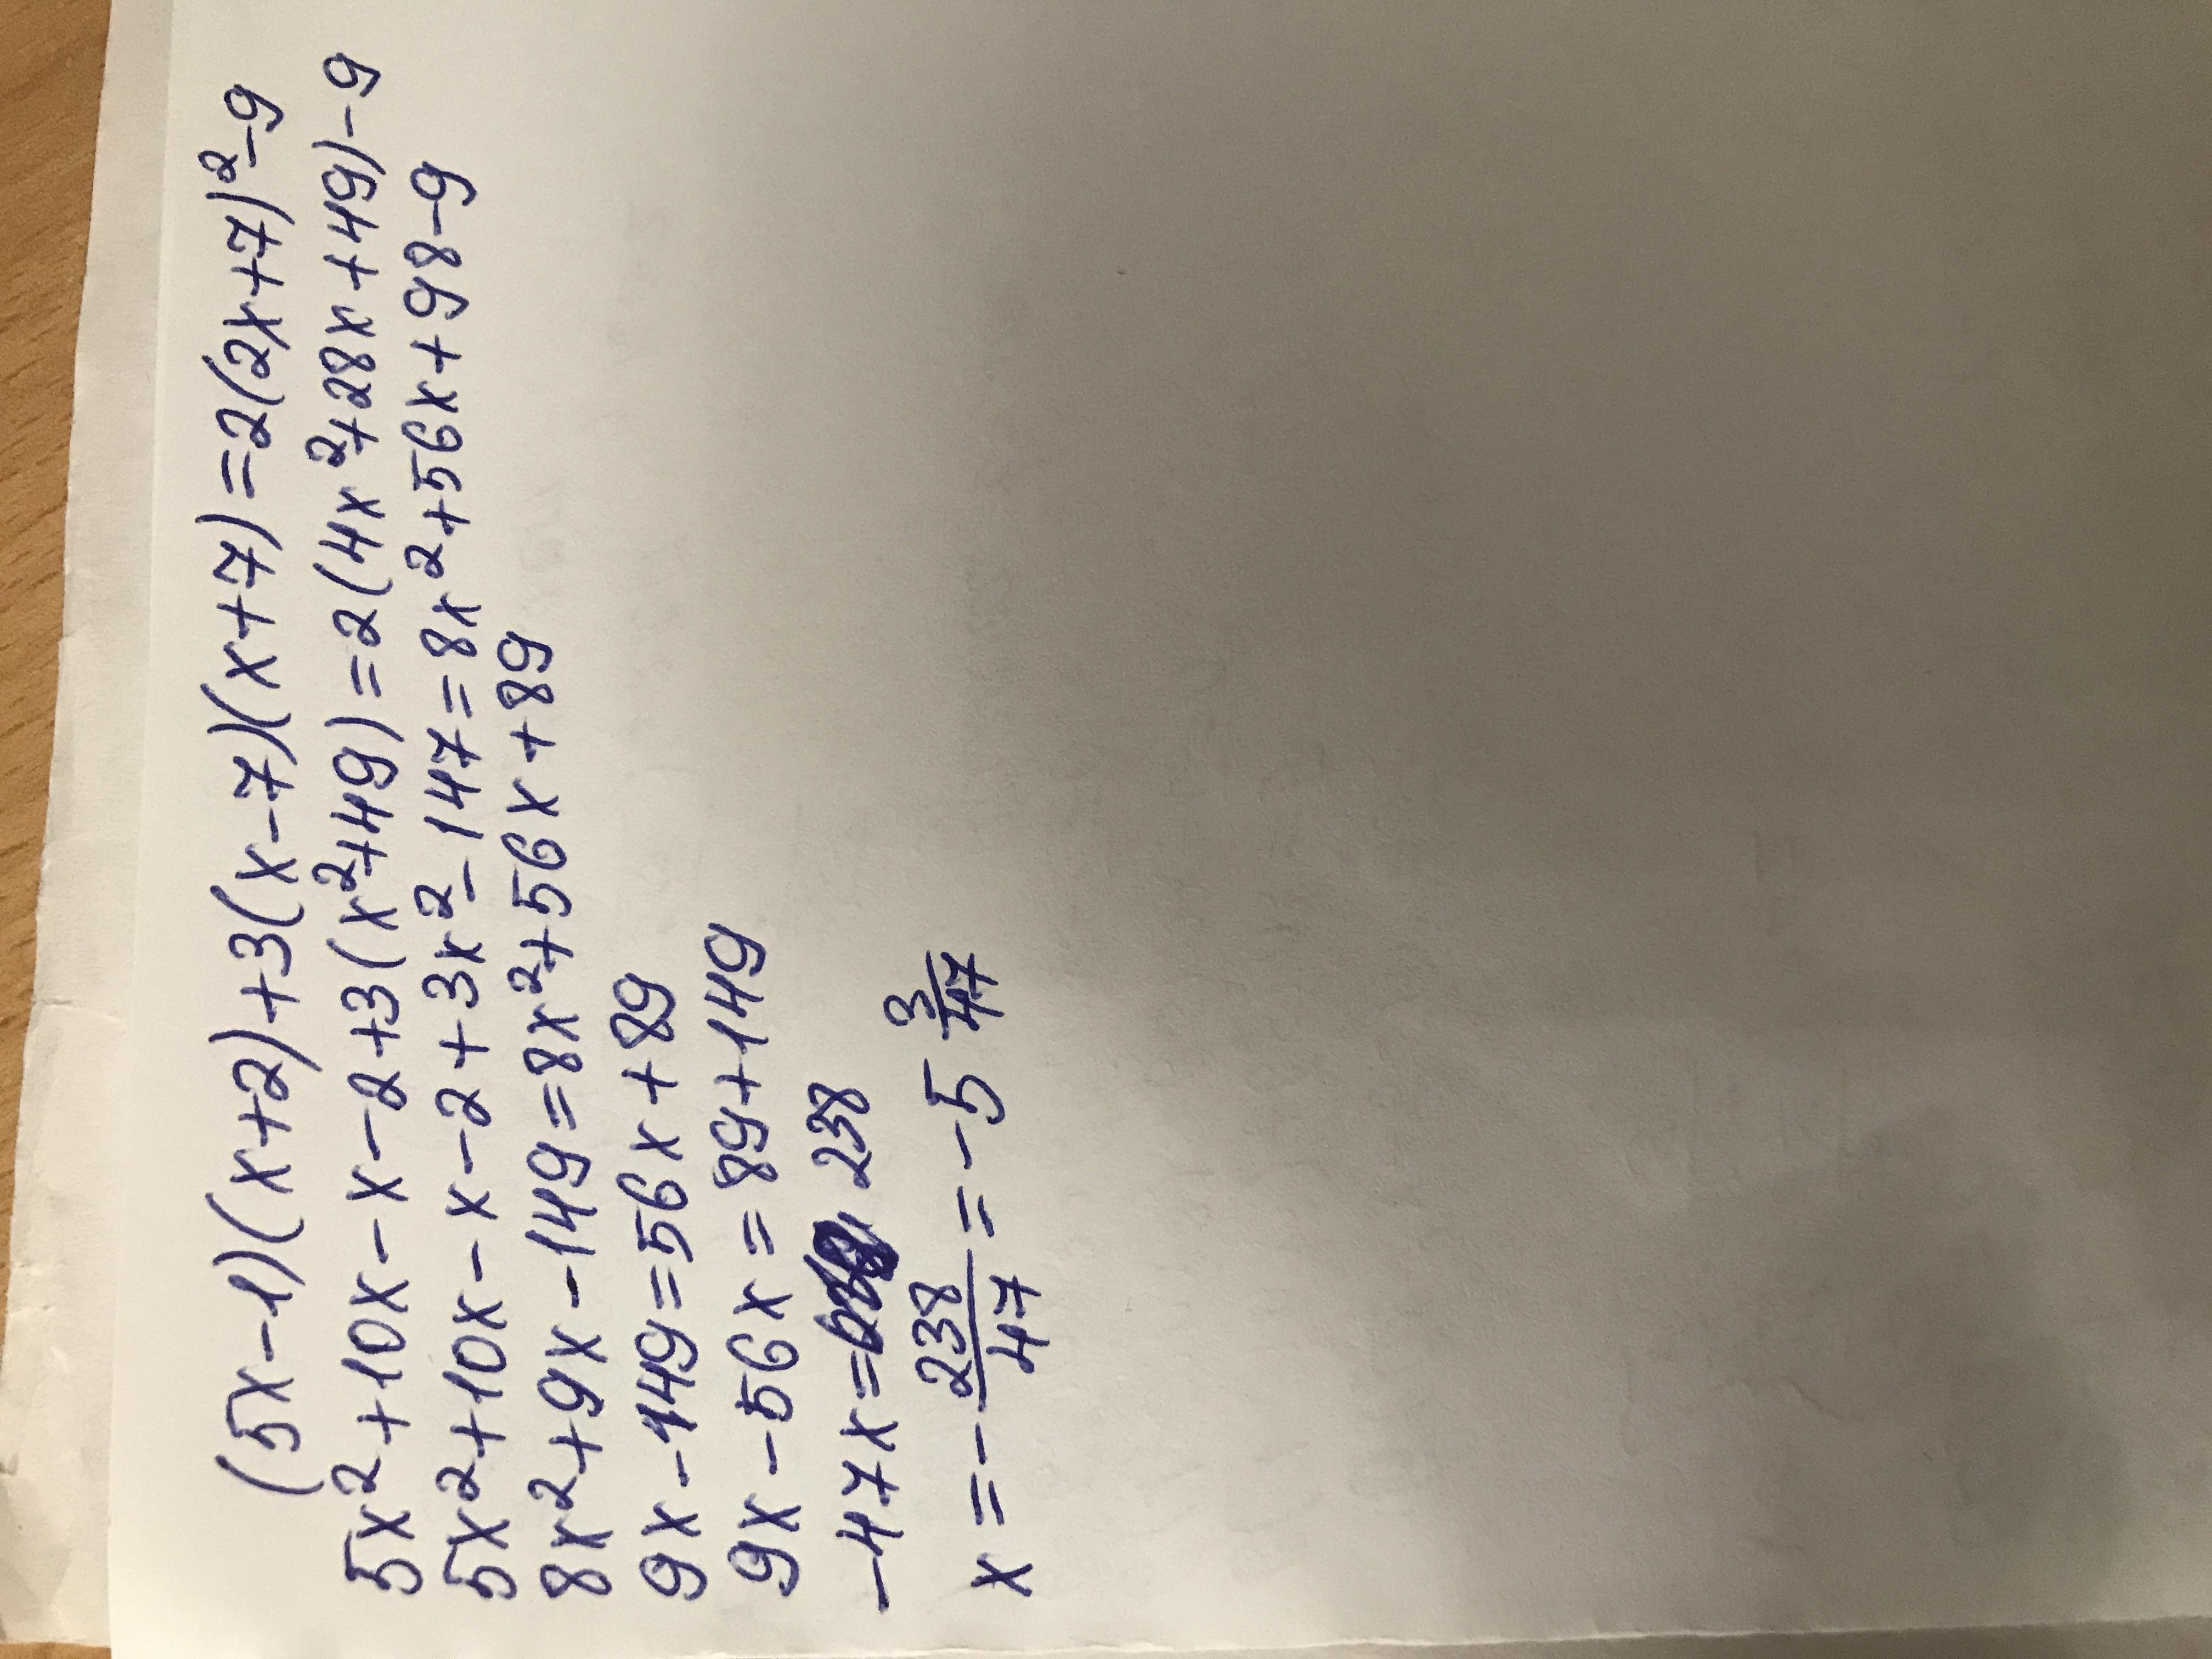 (5x-1)(x+2)+3(x-7)(x+7)=2(2x+7)²-9
5x²+10x-x-2+3(x²+49)=2(4x²+28x+49)-9
5x²+10x-x-2+3x²-147=8x²+56x+98-9
8x²+9x-149=8x²+56x+89
9x-149=56x+89
9x-56x=89+149
-47x= 238
x=-238/47=-5 3/47